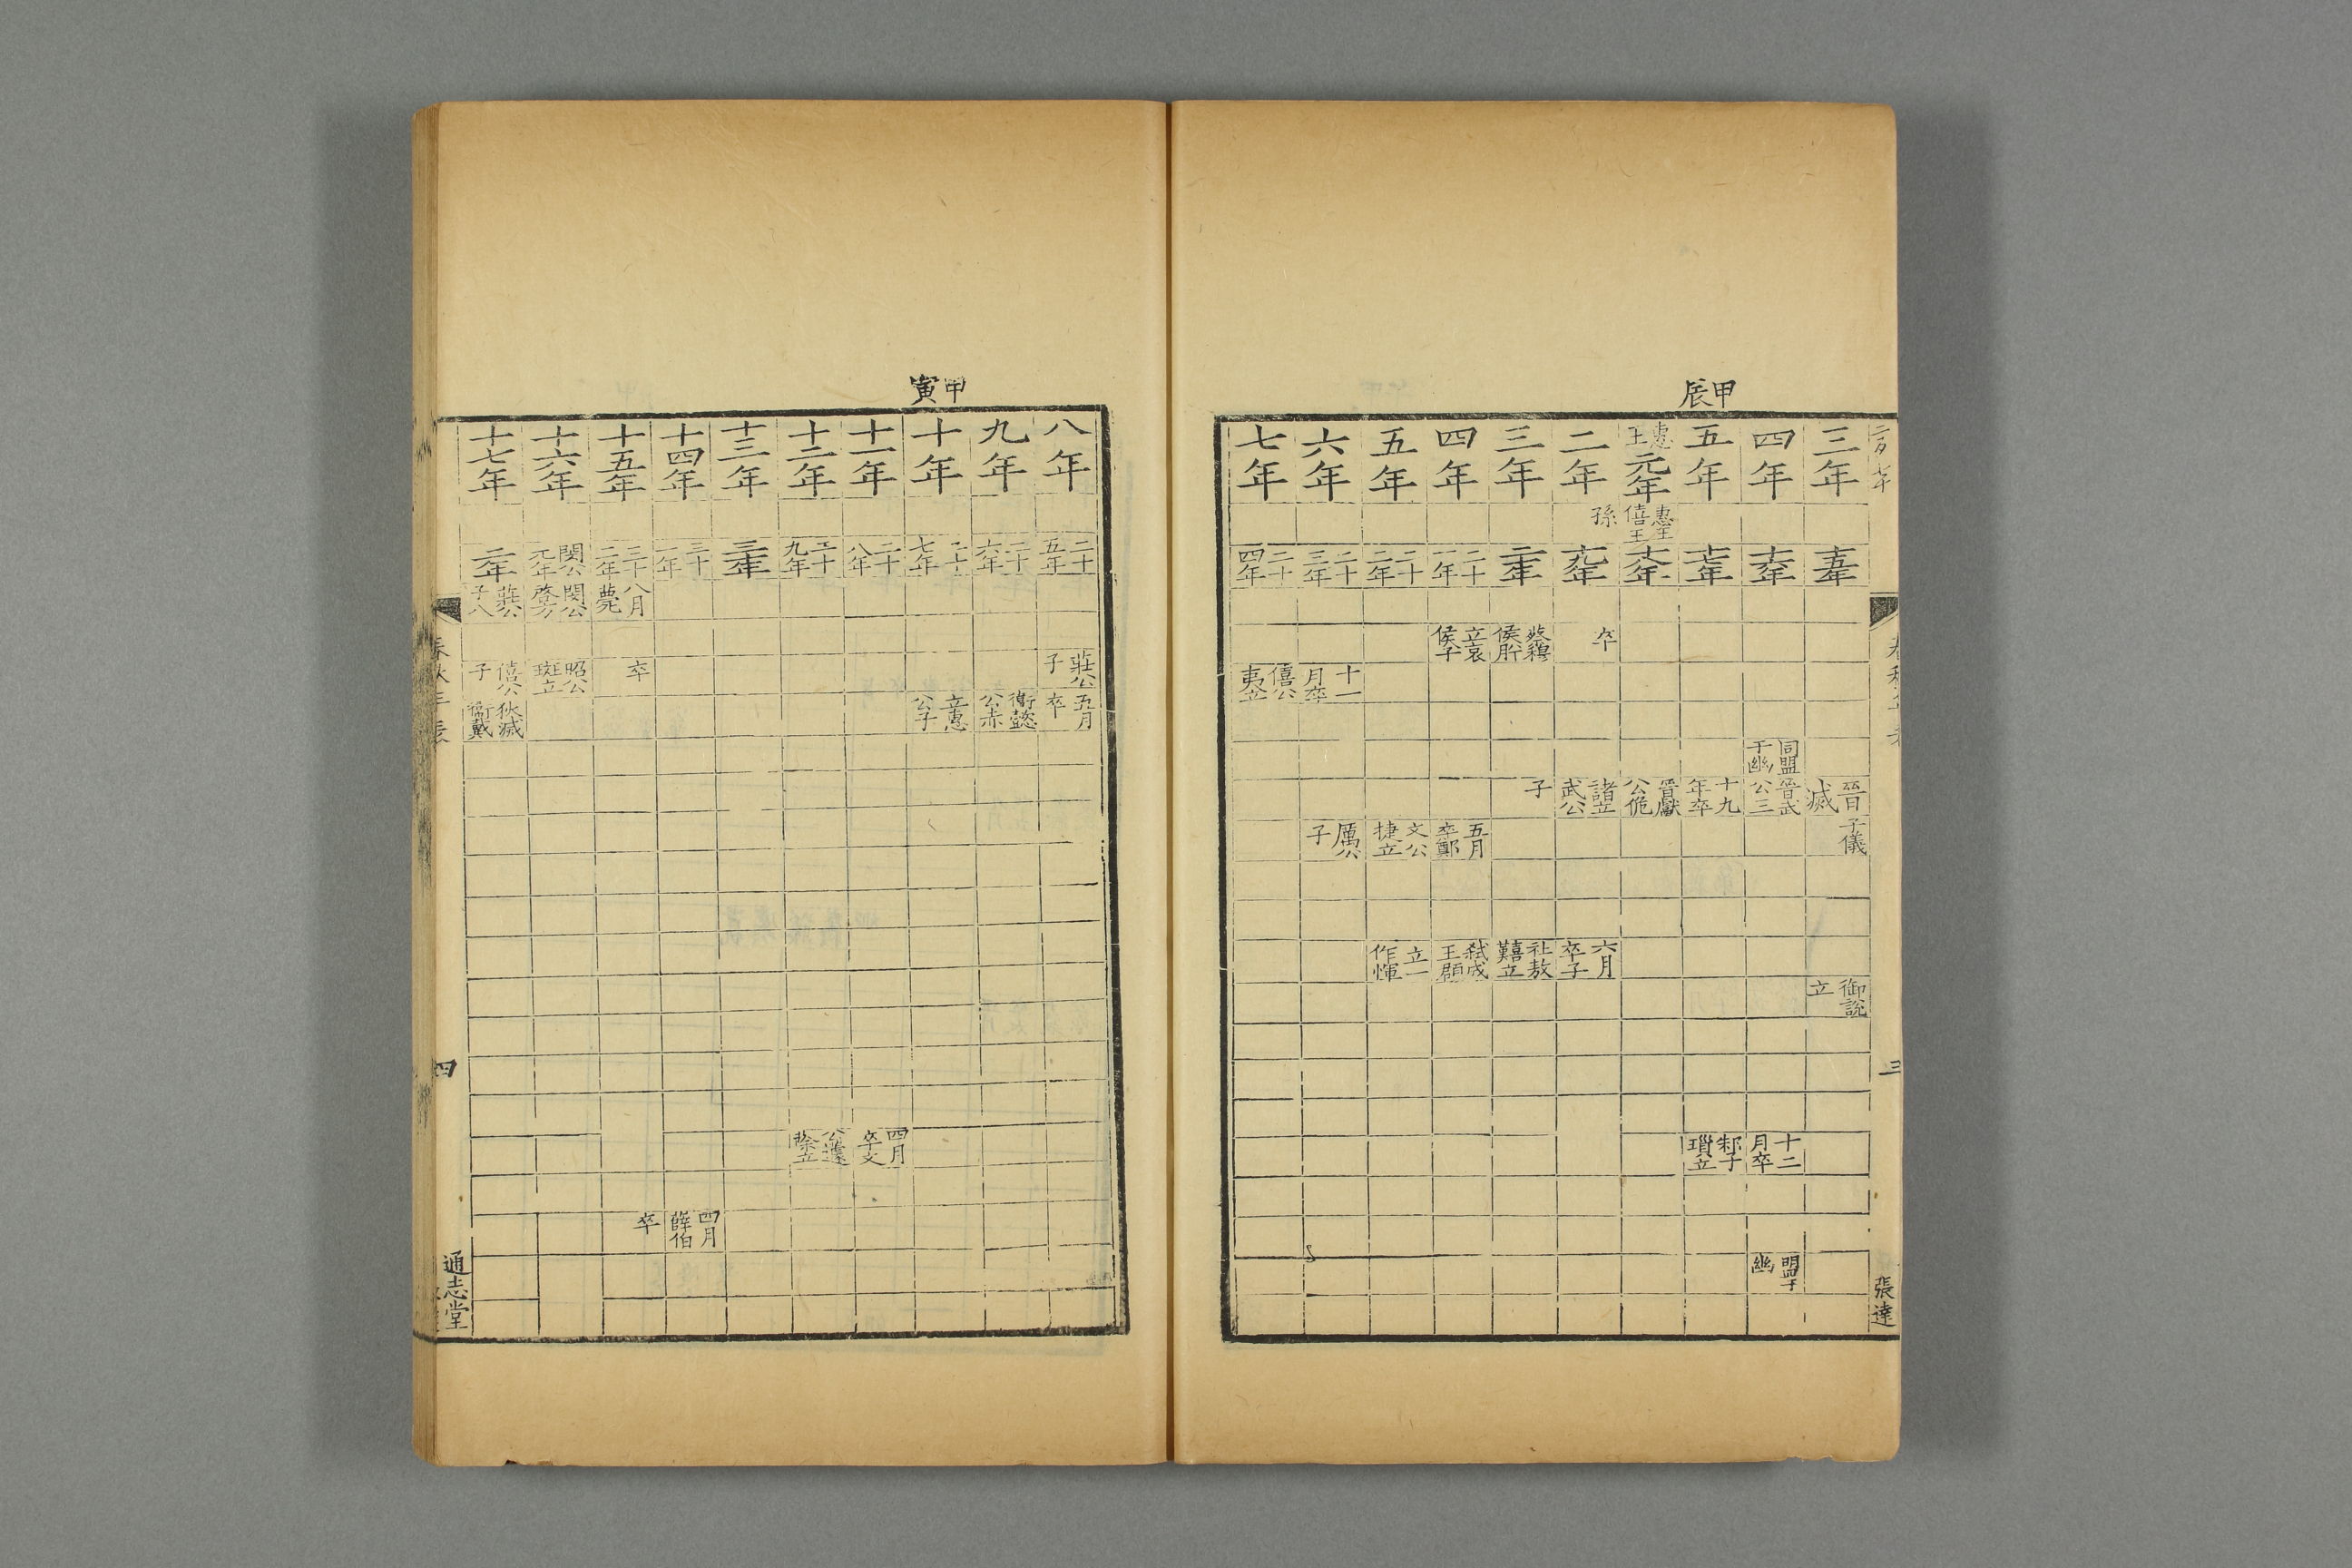 甲辰
三年
四年
五年
惠王元年
二年
三年
四年
五年
六年
七年
惠王僖王孫
十五年
十六年
十七年
十八年
十九年
二十年
二十一年
二十二年
二十三年
二十四年
卒
蔡穆侯肸
立哀侯子
十一月卒
僖公夷立
同盟于幽
晉滅
晉武公三
十九年卒
晉獻公佹
諸立武公
子
子儀
五月卒鄭
文公捷立
厲公子
六月卒子
社敖囏立
弑成王頵
立一作惲
御說立
十二月卒
邾子瑣立
盟于幽
三
張達
甲寅
八年
九年
十年
十一年
十二年
十三年
十四年
十五年
十六年
十七年
二十五年
二十六年
二十七年
二十八年
二十九年
三十年
三十一年
三十二年
閔公元年
二年
八月薨
閔公啓方
莊公子八
莊公子
卒
昭公班立
僖公子
五月卒
衛懿公赤
立惠公子
狄滅衛戴
四月卒文
公蘧蒢立
四月薛伯
卒
春秋年表
四
通志堂